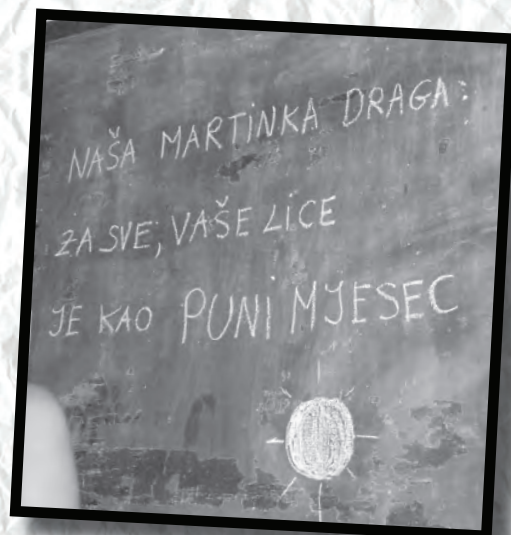 NAŠA MARTiNKA DRAGA:
ZA SVE, VAŠE LiCE
JE KAO PUNi MJESEC